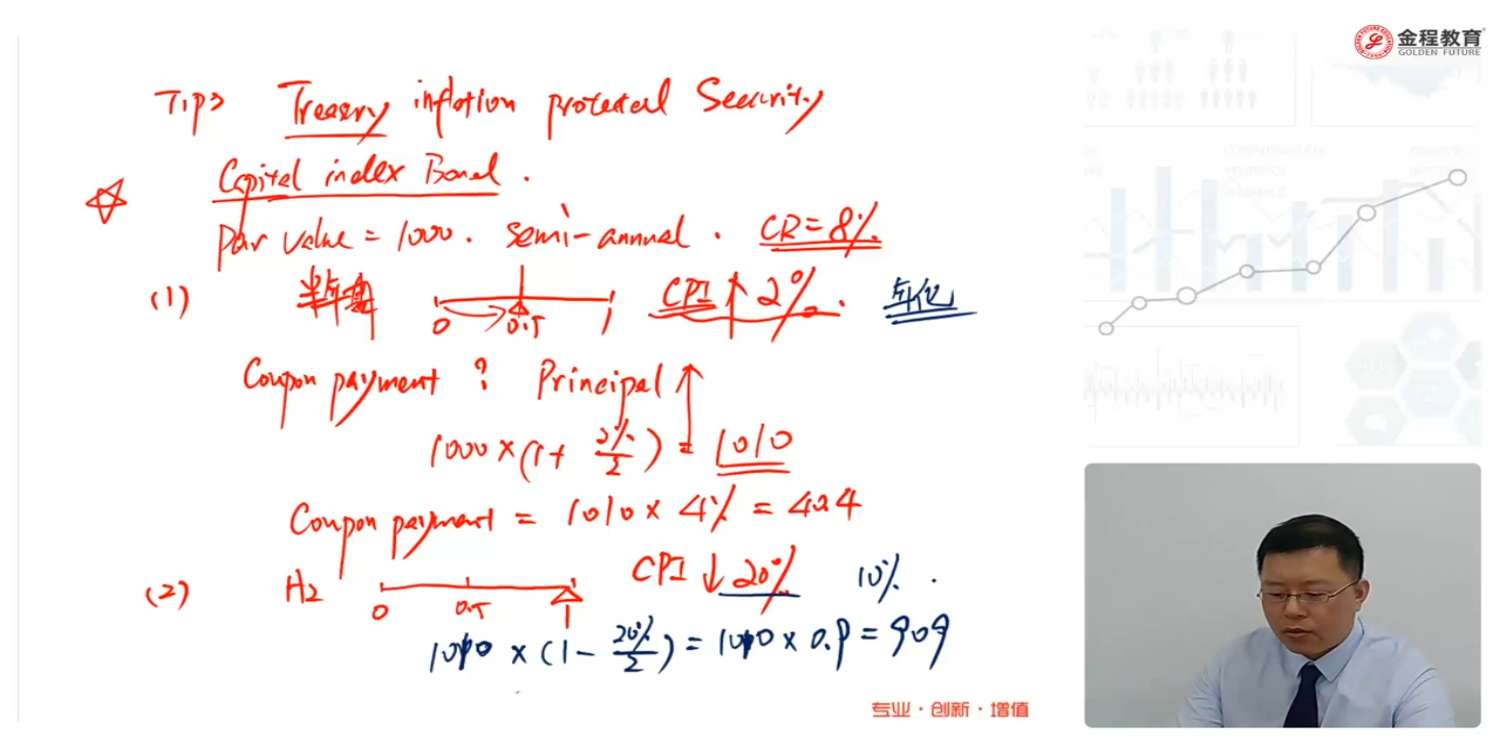 金程教育
GOLDEN FUTURE
Tips Treasury inflation protected Security
Capital index Bond.
Par value = 1000. semi-annual. CR = 8%
(1) 0 0.5 1 CPI ↑ 2%. 年化
Coupon payment ? Principal ↑
1000 × (1 + 2%/2) = 1010
Coupon payment = 1010 × 4% = 40.4
(2) H2 0 0.5 1 CPI ↓ 20% 10%.
1010 × (1 - 20%/2) = 1010 × 0.9 = 909
专业·创新·增值